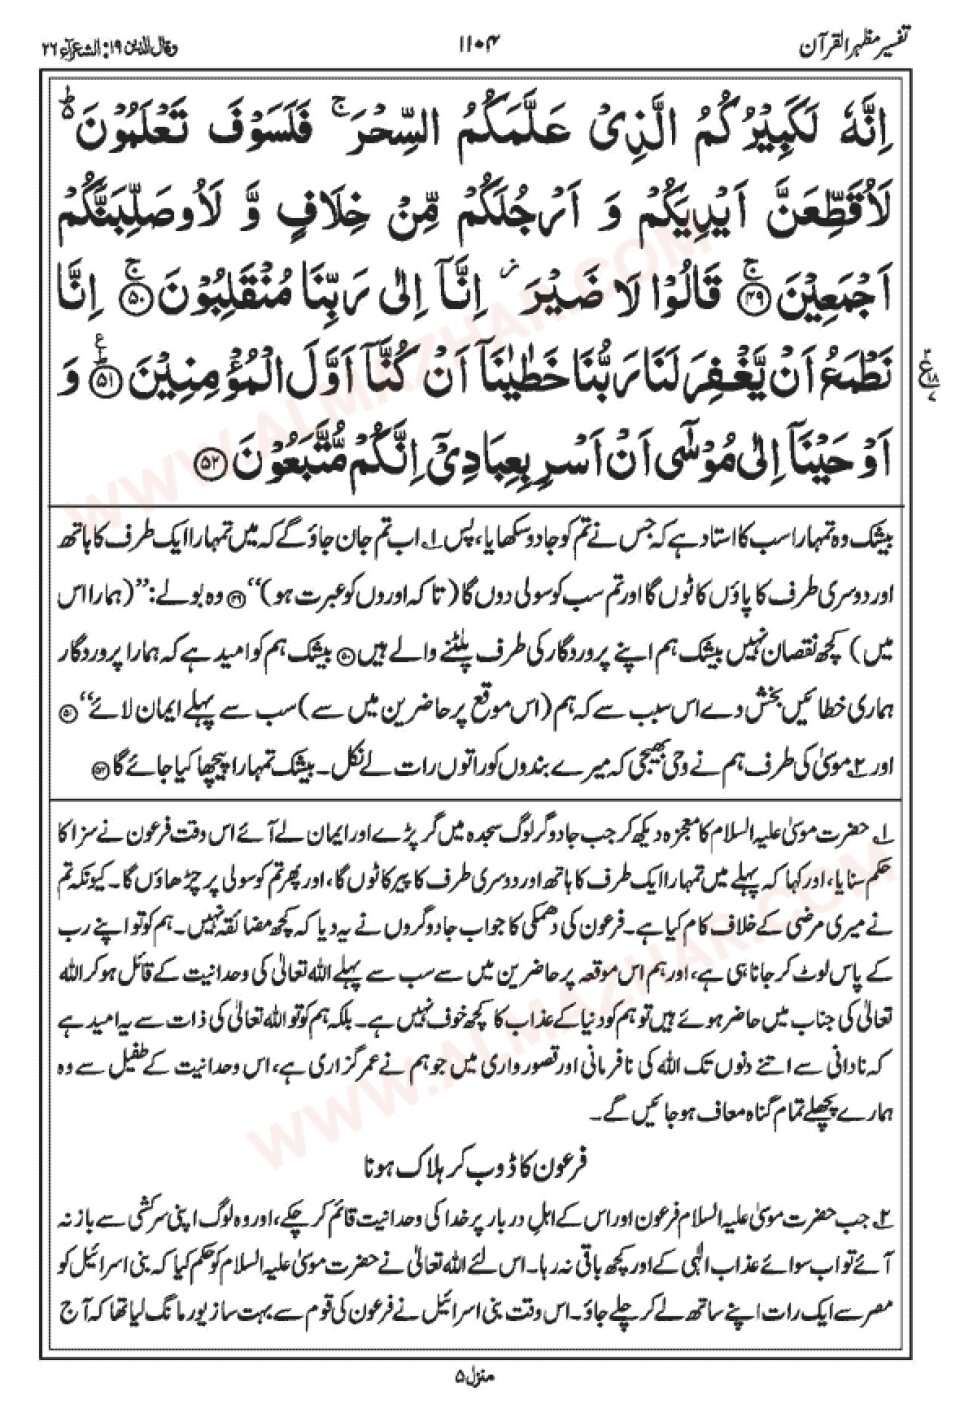 تفسیر مظہر القرآن
۱۱۰۴
وقال الذین ۱۹: الشعرآء ۲۶
اِنَّهٗ لَكَبِیْرُكُمُ الَّذِیْ عَلَّمَكُمُ السِّحْرَ ۚ فَلَسَوْفَ تَعْلَمُوْنَ ؕ۵
لَاُقَطِّعَنَّ اَیْدِیَكُمْ وَ اَرْجُلَكُمْ مِّنْ خِلَافٍ وَّ لَاُوصَلِّبَنَّكُمْ
اَجْمَعِیْنَ ۚ﴿۴۹﴾ قَالُوْا لَا ضَیْرَ ؗ اِنَّاۤ اِلٰی رَبِّنَا مُنْقَلِبُوْنَ ۚ﴿۵۰﴾ اِنَّا
نَطْمَعُ اَنْ یَّغْفِرَ لَنَا رَبُّنَا خَطٰیٰنَاۤ اَنْ كُنَّاۤ اَوَّلَ الْمُؤْمِنِیْنَ ﴿۵۱﴾ؕ۠ وَ
اَوْحَیْنَاۤ اِلٰی مُوْسٰۤی اَنْ اَسْرِ بِعِبَادِیْۤ اِنَّكُمْ مُّتَّبَعُوْنَ ﴿۵۲﴾
بیشک وہ تمہارا سب کا استاد ہے کہ جس نے تم کو جادو سکھایا، پس ۱؎ اب تم جان جاؤ گے کہ میں تمہارا ایک طرف کا ہاتھ
اور دوسری طرف کا پاؤں کاٹوں گا اور تم سب کو سولی دوں گا (تاکہ اوروں کو عبرت ہو)‘‘ ﴿۴۹﴾ وہ بولے: ’’(ہمارا اس
میں) کچھ نقصان نہیں بیشک ہم اپنے پروردگار کی طرف پلٹنے والے ہیں ﴿۵۰﴾ بیشک ہم کو امید ہے کہ ہمارا پروردگار
ہماری خطائیں بخش دے اس سبب سے کہ ہم (اس موقع پر حاضرین میں سے) سب سے پہلے ایمان لائے‘‘ ﴿۵۱﴾
اور ۲؎ موسیٰ کی طرف ہم نے وحی بھیجی کہ میرے بندوں کو راتوں رات لے نکل۔ بیشک تمہارا پیچھا کیا جائے گا ﴿۵۲﴾
۱؎ حضرت موسیٰ علیہ السلام کا معجزہ دیکھ کر جب جادوگر لوگ سجدہ میں گر پڑے اور ایمان لے آئے اس وقت فرعون نے سزا کا
حکم سنایا، اور کہا کہ پہلے میں تمہارا ایک طرف کا ہاتھ اور دوسری طرف کا پیر کاٹوں گا، اور پھر تم کو سولی پر چڑھاؤں گا۔ کیونکہ تم
نے میری مرضی کے خلاف کام کیا ہے۔ فرعون کی دھمکی کا جواب جادوگروں نے یہ دیا کہ کچھ مضائقہ نہیں۔ ہم کو تو اپنے رب
کے پاس لوٹ کر جانا ہی ہے، اور ہم اس موقعہ پر حاضرین میں سے سب سے پہلے اللہ تعالیٰ کی وحدانیت کے قائل ہو کر اللہ
تعالیٰ کی جناب میں حاضر ہوئے ہیں تو ہم کو دنیا کے عذاب کا کچھ خوف نہیں ہے۔ بلکہ ہم کو تو اللہ تعالیٰ کی ذات سے یہ امید ہے
کہ نادانی سے اتنے دنوں تک اللہ کی نافرمانی اور تصور واری میں جو ہم نے عمر گزاری ہے، اس وحدانیت کے طفیل سے وہ
ہمارے پچھلے تمام گناہ معاف ہو جائیں گے۔
فرعون کا ڈوب کر ہلاک ہونا
۲؎ جب حضرت موسیٰ علیہ السلام فرعون اور اس کے اہلِ دربار پر خدا کی وحدانیت قائم کر چکے، اور وہ لوگ اپنی سرکشی سے باز نہ
آئے تو اب سوائے عذاب الٰہی کے اور کچھ باقی نہ رہا۔ اس لئے اللہ تعالیٰ نے حضرت موسیٰ علیہ السلام کو حکم کیا کہ بنی اسرائیل کو
مصر سے ایک رات اپنے ساتھ لے کر چلے جاؤ۔ اس وقت بنی اسرائیل نے فرعون کی قوم سے بہت سا زیور مانگ لیا تھا کہ آج
منزل ۵
WWW.ALMAZHAR.COM
WWW.ALMAZHAR.COM